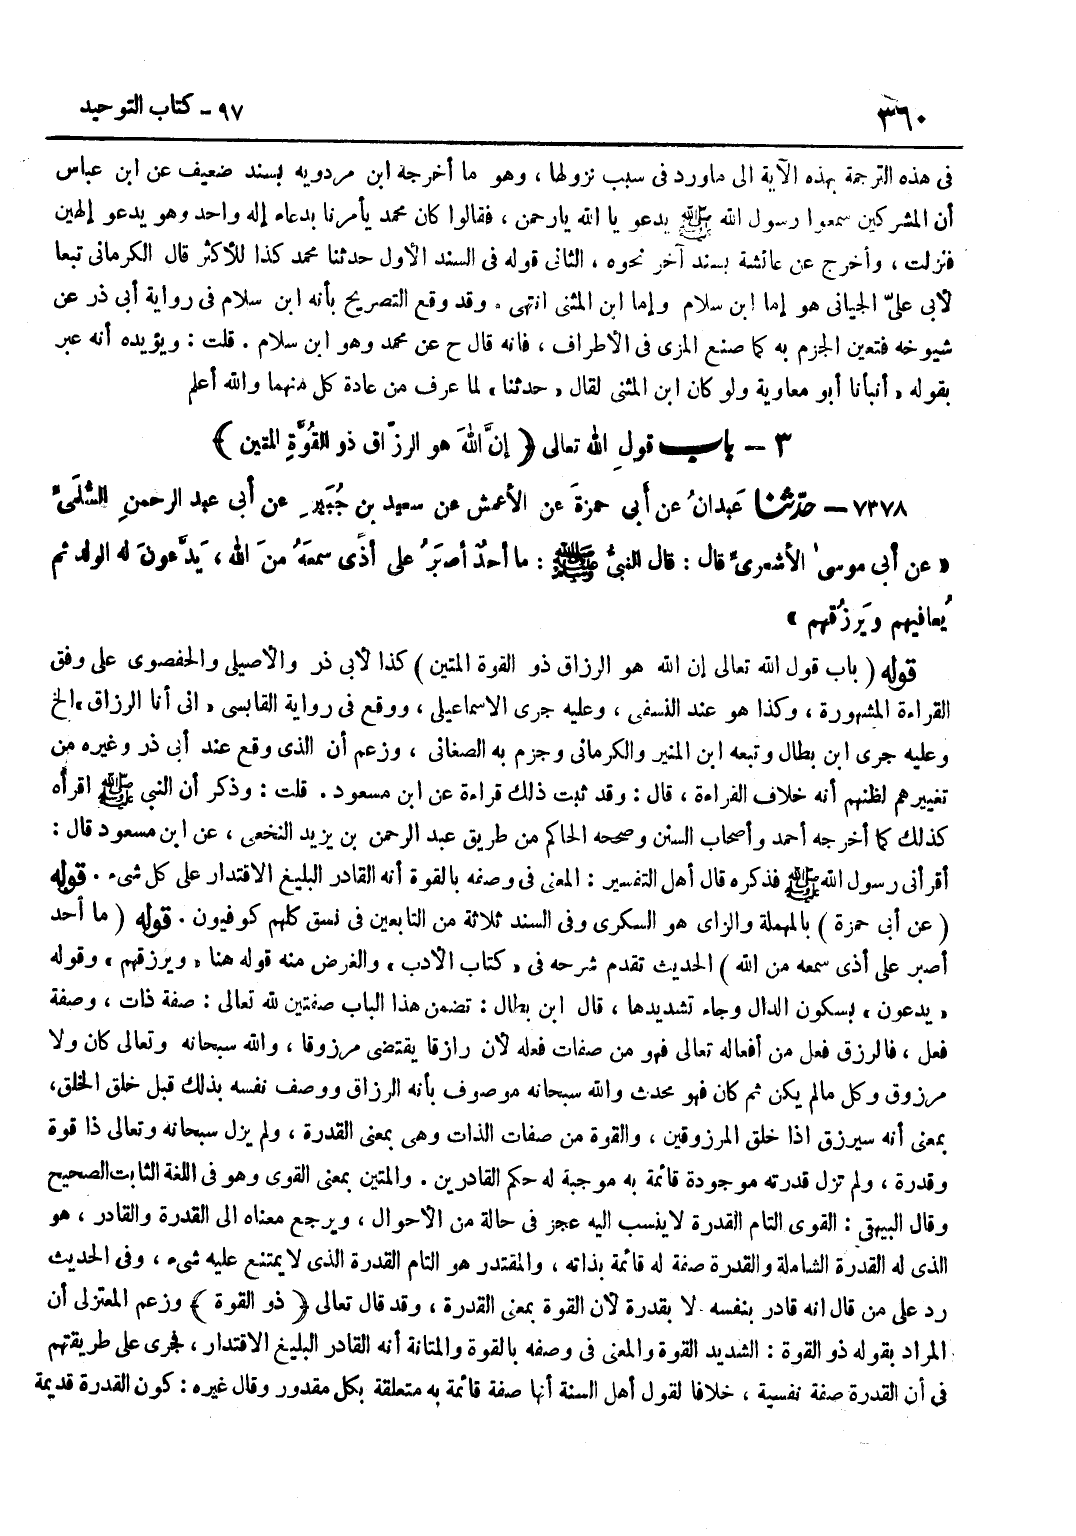 ٣٦٠
٩٧ - كتاب التوحيد
فى هذه الترجمة بهذه الآية الى ماورد فى سبب نزولها ، وهو ما أخرجة ابن مردويه بسند ضعيف عن ابن عباس
أن المشركين سمعوا رسول الله ﷺ يدعو يا الله يارحمن ، فقالوا كان محمد يأمرنا بدعاء إله واحد وهو يدعو إلهين
فنزلت ، وأخرج عن عائشة بسند آخر نحوه ، الثانى قوله فى السند الأول حدثنا محمد كذا للأكثر قال الكرمانى تبعا
لأبى علىّ الجيانى هو إما ابن سلام وإما ابن المثنى انتهى . وقد وقع التصريح بأنه ابن سلام فى رواية أبى ذر عن
شيوخه فتعين الجزم به كما صنع المزى فى الأطراف ، فانه قال ح عن محمد وهو ابن سلام . قلت : ويؤيده أنه عبر
بقوله « أنبأنا أبو معاوية ولو كان ابن المثنى لقال « حدثنا » لما عرف من عادة كل منهما والله أعلم
٣ - باب قول الله تعالى ﴿ إنَّ اللهَ هو الرزّاق ذو القُوَّةِ المتين ﴾
٧٣٧٨ - حدّثنا عَبدانُ عن أبى حمزةَ عن الأعمش عن سعيد بن جُبَيرِ عن أبى عبد الرحمنِ السُّلَمىِّ
« عن أبى موسىٰ الأشعرىِّ قال : قال النبىُّ ﷺ : ما أحدٌ أصبَرُ على أذًى سمعَهُ منَ الله ، يَدَّعونَ له الولد ثم
يُعافيهم ويَرزُقهم »
قوله ( باب قول الله تعالى إن الله هو الرزاق ذو القوة المتين ) كذا لأبى ذر والأصيلى والحفصوى على وفق
القراءة المشهورة ، وكذا هو عند النسفى ، وعليه جرى الاسماعيلى ، ووقع فى رواية القابسى « انى أنا الرزاق » الخ
وعليه جرى ابن بطال وتبعه ابن المنير والكرمانى وجزم به الصغانى ، وزعم أن الذى وقع عند أبى ذر وغيره من
تغييرهم لظنهم أنه خلاف القراءة ، قال : وقد ثبت ذلك قراءة عن ابن مسعود . قلت : وذكر أن النبى ﷺ اقرأه
كذلك كما أخرجه أحمد وأصحاب السنن وصححه الحاكم من طريق عبد الرحمن بن يزيد النخعى ، عن ابن مسعود قال :
أقرأنى رسول الله ﷺ فذكره قال أهل التفسير : المعنى فى وصفه بالقوة أنه القادر البليغ الاقتدار على كل شىء . قوله
( عن أبى حمزة ) بالمهملة والزاى هو السكرى وفى السند ثلاثة من التابعين فى نسق كلهم كوفيون . قوله ( ما أحد
أصبر على أذى سمعه من الله ) الحديث تقدم شرحه فى « كتاب الأدب » والغرض منه قوله هنا « ويرزقهم » وقوله
« يدعون » بسكون الدال وجاء تشديدها ، قال ابن بطال : تضمن هذا الباب صفتين لله تعالى : صفة ذات ، وصفة
فعل ، فالرزق فعل من أفعاله تعالى فهو من صفات فعله لأن رازقا يقتضى مرزوقا ، والله سبحانه وتعالى كان ولا
مرزوق وكل مالم يكن ثم كان فهو محدث والله سبحانه موصوف بأنه الرزاق ووصف نفسه بذلك قبل خلق الخلق،
بمعنى أنه سيرزق اذا خلق المرزوقين ، والقوة من صفات الذات وهى بمعنى القدرة ، ولم يزل سبحانه وتعالى ذا قوة
وقدرة ، ولم تزل قدرته موجودة قائمة به موجبة له حكم القادرين . والمتين بمعنى القوى وهو فى اللغة الثابت الصحيح
وقال البيهقى : القوى التام القدرة لاينسب اليه عجز فى حالة من الأحوال ، ويرجع معناه الى القدرة والقادر ، هو
الذى له القدرة الشاملة والقدرة صفة له قائمة بذاته ، والمقتدر هو التام القدرة الذى لايمتنع عليه شىء ، وفى الحديث
رد على من قال انه قادر بنفسه لا بقدرة لأن القوة بمعنى القدرة ، وقد قال تعالى ﴿ ذو القوة ﴾ وزعم المعتزلى أن
المراد بقوله ذو القوة : الشديد القوة والمعنى فى وصفه بالقوة والمتانة أنه القادر البليغ الاقتدار ، فجرى على طريقتهم
فى أن القدرة صفة نفسية ، خلافا لقول أهل السنة أنها صفة قائمة به متعلقة بكل مقدور وقال غيره : كون القدرة قديمة